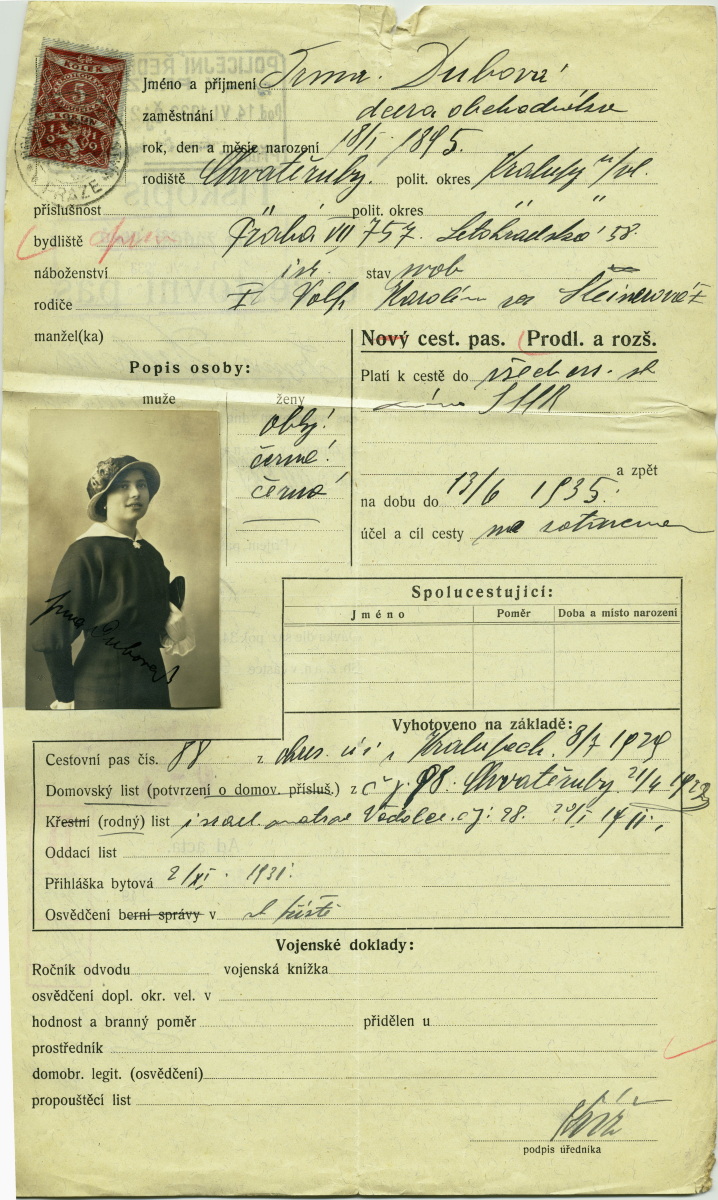 5
PRAZE
Jméno a příjmení Irma Dubová
zaměstnání dcera obchodníka
rok, den a měsíc narození 18/I. 1895.
rodiště Chvatěruby. polit. okres Kralupy n/Vl.
příslušnost " polit. okres " "
bydliště Praha VII 757. Letohradská 58.
náboženství isr. stav svob
rodiče Volf, Karolina roz Steinerová
manžel(ka)
Nový cest. pas. Prodl. a rozš.
Popis osoby:
muže ženy
oblý
černé
černá
Platí k cestě do všech ev. st
SSSR
a zpět
na dobu do 13/6 1935
účel a cíl cesty na zotavenou
Irma Dubová
Spolucestující:
Jméno Poměr Doba a místo narození
Vyhotoveno na základě:
Cestovní pas čís. 88 z okres. úř. v Kralupech 8/7 1929
Domovský list (potvrzení o domov. přísluš.) z čj 98. Chvatěruby
Křestní (rodný) list israel. matrae Vodolce čj: 28. 20/I 1911,
Oddací list
Přihláška bytová 2/XI. 1931.
Osvědčení berní správy v
Vojenské doklady:
Ročník odvodu vojenská knížka
osvědčení dopl. okr. vel. v
hodnost a branný poměr přidělen u
prostředník
domobr. legit. (osvědčení)
propouštěcí list
podpis úředníka